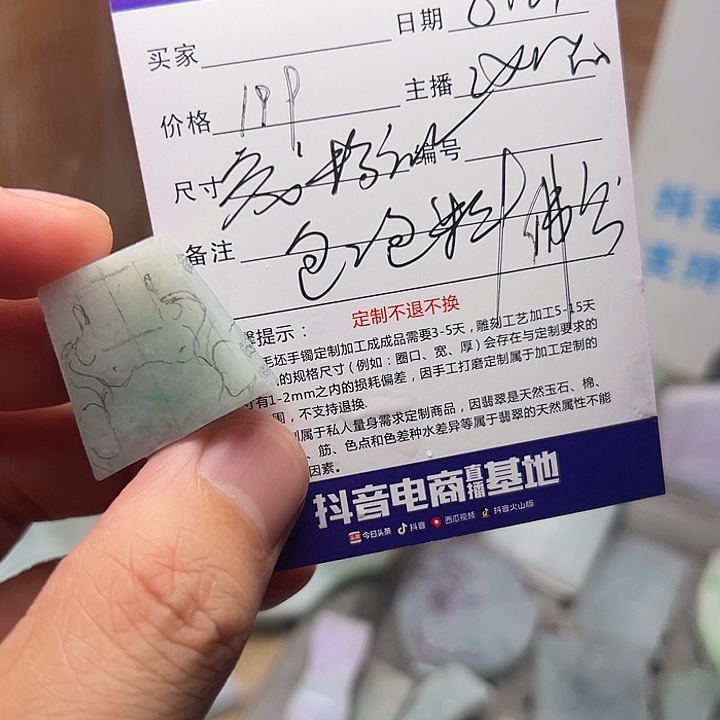 日期
买家
价格 19P 主播
尺寸 编号
备注 包
定制不退不换
馨提示:
毛坯手镯定制加工成成品需要3-5天,雕刻工艺加工5-15天
的规格尺寸(例如:圈口、宽、厚)会存在与定制要求的
寸有1-2mm之内的损耗偏差,因手工打磨定制属于加工定制的
围,不支持退换
制属于私人量身需求定制商品,因翡翠是天然玉石、棉、
、筋、色点和色差种水差异等属于翡翠的天然属性不能
因素。
抖音电商直播基地
今日头条 抖音 西瓜视频 抖音火山版
抖音
支持